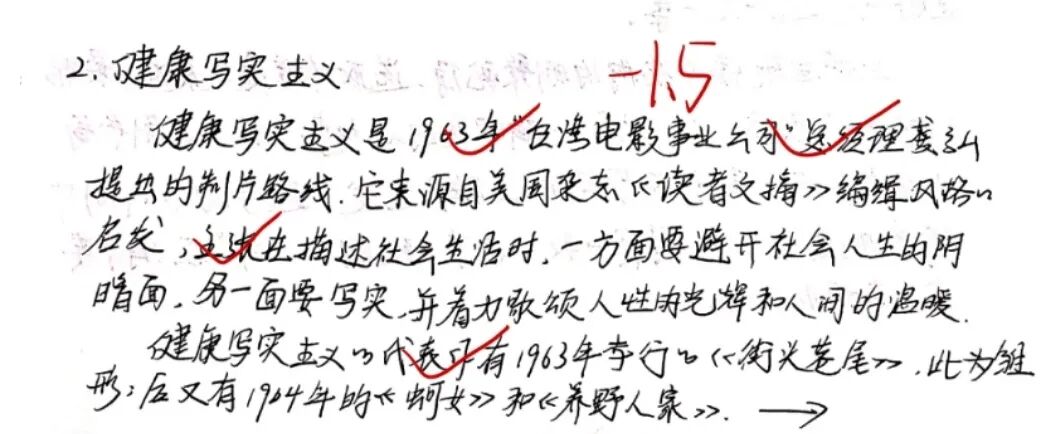 2. 健康写实主义
-1.5
健康写实主义是1963年"台湾电影事业公司"总经理龚弘
提出的制片路线.它来源自美国杂志《读者文摘》编辑风格的
启发,主张在描述社会生活时,一方面要避开社会人生的阴
暗面,另一面要写实,并着力歌颂人性的光辉和人间的温暖.
健康写实主义的代表作有1963年李行的《街头巷尾》,此为雏
形;后又有1964年的《蚵女》和《养野人家》. →